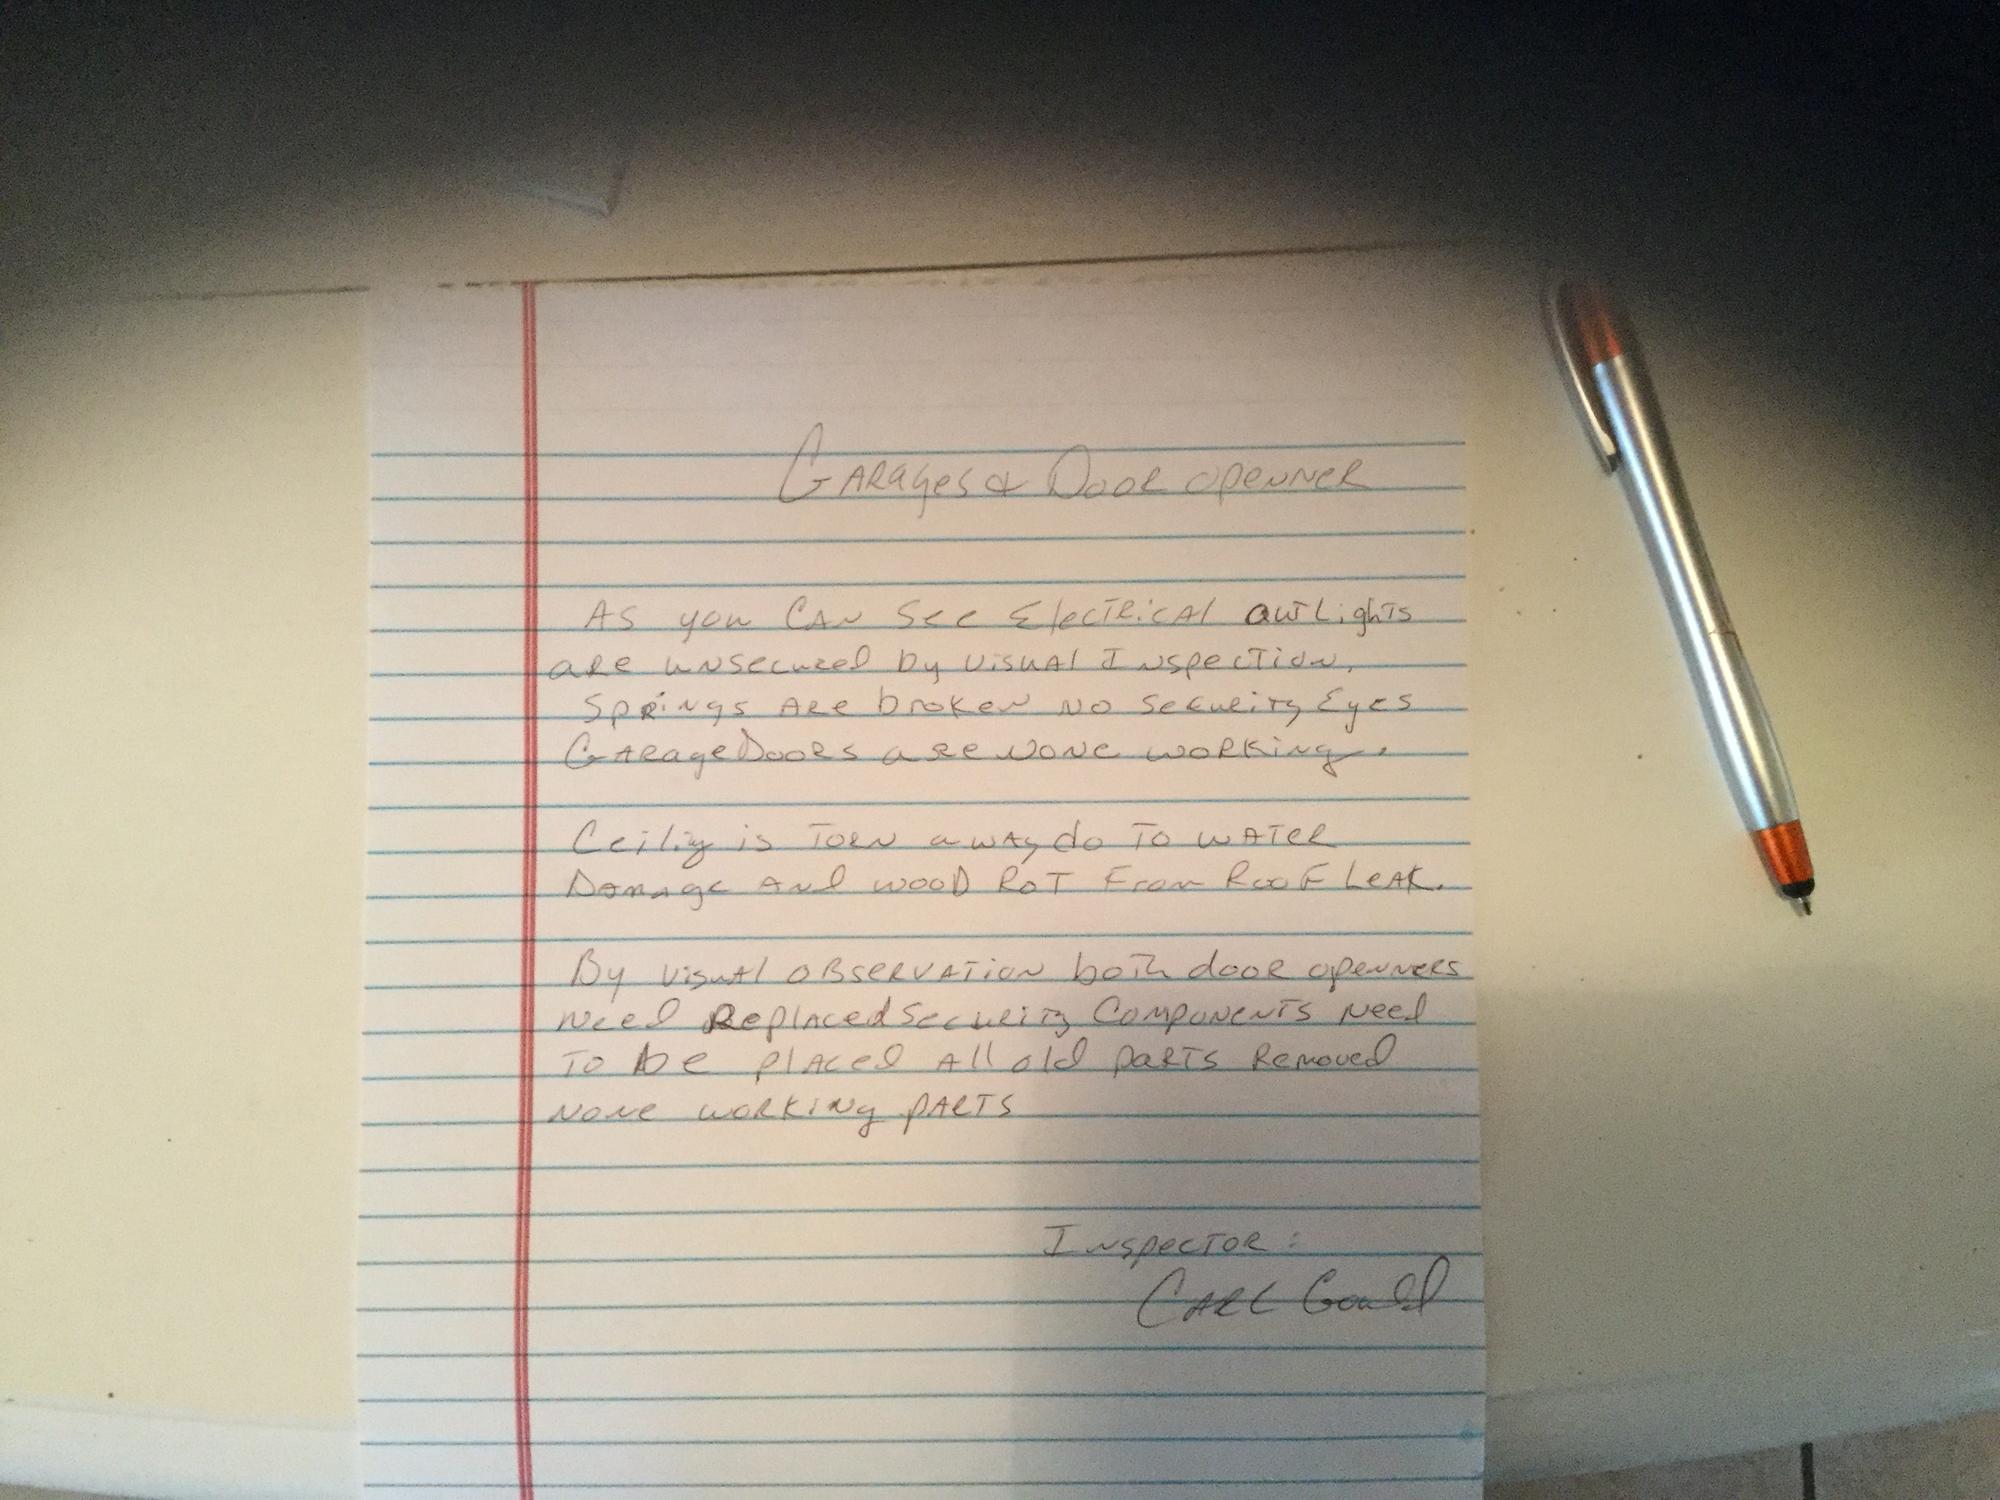 Garages & Door openner
As you can see Electrical outLights
are unsecured by visual Inspection,
Springs are broken no security Eyes
Garage Doors are none working.
Ceilig is torn away do to water
Damage and wood Rot From Roof Leak.
By visual observation both door openners
need Replaced Security Components need
to be placed All old parts Removed
none working parts
Inspector:
Carl Gould